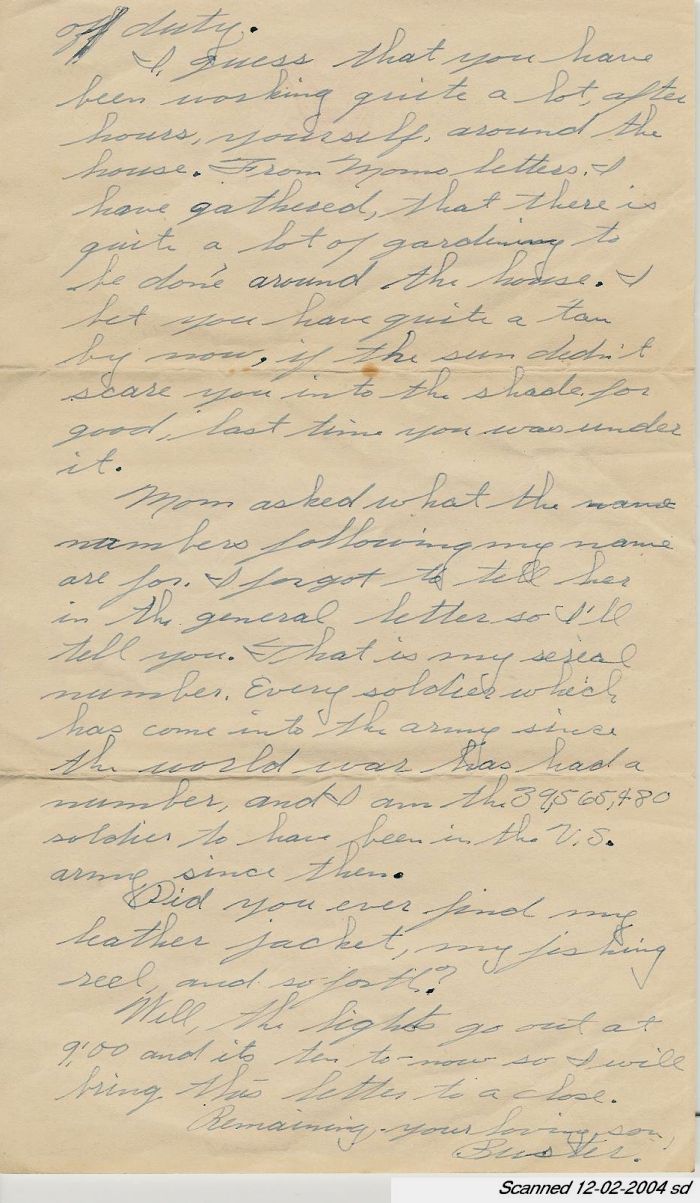 off duty.
I guess that you have
been working quite a lot, after
hours, yourself, around the
house. From Moms letters, I
have gathered, that there is
quite a lot of gardening to
be done around the house. I
bet you have quite a tan
by now, if the sun didn't
scare you into the shade for
good, last time you was under
it.
Mom asked what the name
numbers following my name
are for. I forgot to tell her
in the general letter so I'll
tell you. That is my serial
number. Every soldier which
has come into the army since
the world war has had a
number, and I am the 39,565,480
soldier to have been in the U.S.
army since then.
Did you ever find my
leather jacket, my fishing
reel, and so-forth?
Well, the lights go out at
9:00 and its ten to-now so I will
bring this letter to a close.
Remaining your loving son,
Buster.
Scanned 12-02-2004 sd